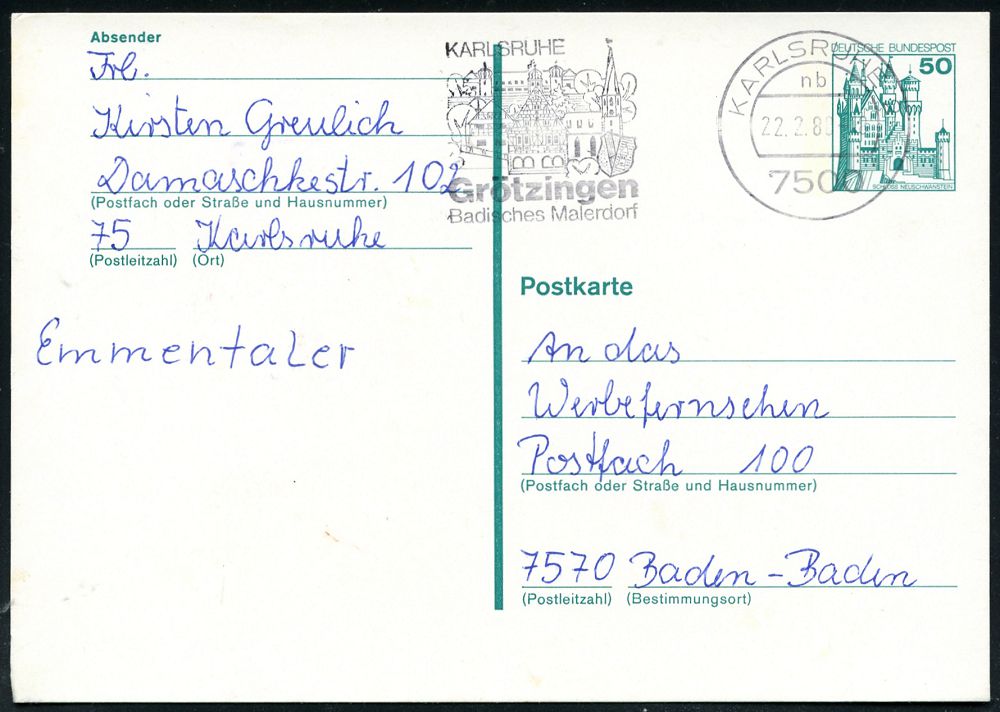 Absender
Frl.
Kirsten Greulich
Damaschkestr. 102
(Postfach oder Straße und Hausnummer)
75 Karlsruhe
(Postleitzahl) (Ort)
Emmentaler
KARLSRUHE
Grötzingen
Badisches Malerdorf
KARLSRUHE
nb
22.2.8
7500
DEUTSCHE BUNDESPOST
50
SCHLOSS NEUSCHWANSTEIN
Postkarte
An das
Werbefernsehen
Postfach 100
(Postfach oder Straße und Hausnummer)
7570 Baden-Baden
(Postleitzahl) (Bestimmungsort)